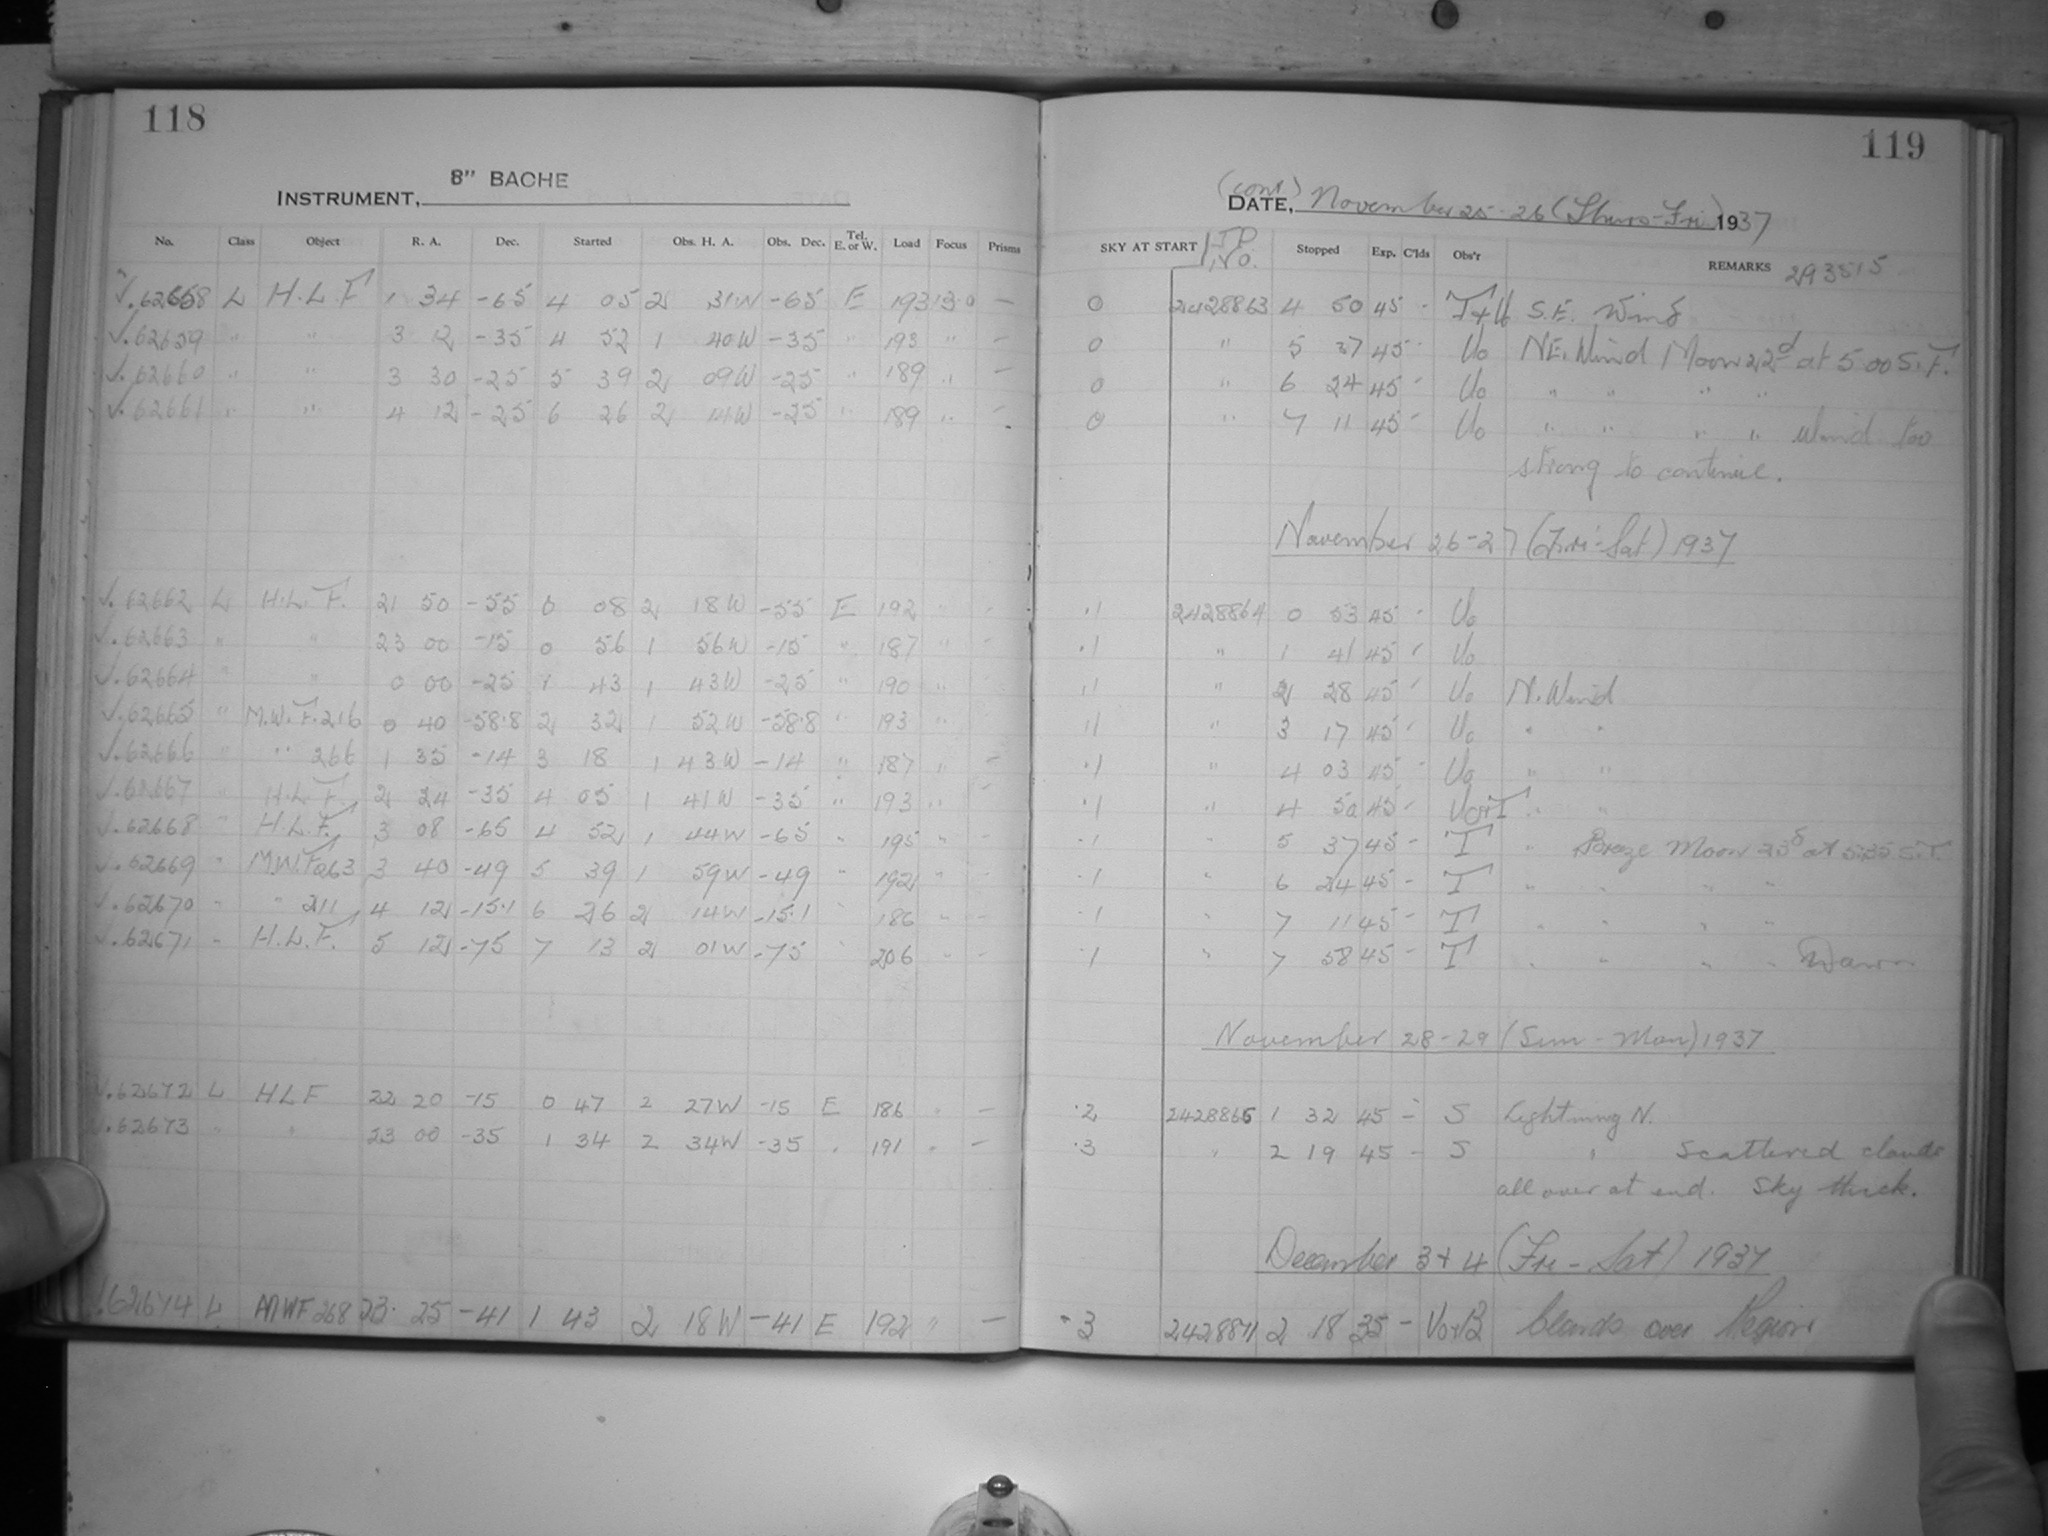 118
8" BACHE
INSTRUMENT,
No. Class Object R. A. Dec. Started Obs. H. A. Obs. Dec. Tel. E. or W. Load Focus Prisms
√.62658 L H.L.F 1 34 -65 4 05 2 31W -65 E 193 13.0 —
√.62659 " " 3 12 -35 4 52 1 40W -35 " 193 " —
√.62660 " " 3 30 -25 5 39 2 09W -25 " 189 " —
√.62661 " " 4 12 -25 6 26 2 14W -25 " 189 " -
√.62662 L H.L.F. 21 50 -55 0 08 2 18W -55 E 192 " -
√.62663 " " 23 00 -15 0 56 1 56W -15 " 187 " -
√.62664 " " 0 00 -25 1 43 1 43W -25 " 190 " -
√.62665 " M.W.F.216 0 40 -58.8 2 32 1 52W -58.8 " 193 " -
√.62666 " " 266 1 35 -14 3 18 1 43W -14 " 187 " —
√.62667 " H.L.F 2 24 -35 4 05 1 41W -35 " 193 " -
√.62668 " H.L.F. 3 08 -65 4 52 1 44W -65 " 195 " -
√.62669 " M.W.F.263 3 40 -49 5 39 1 59W -49 " 192 " -
√.62670 " " 211 4 12 -15.1 6 26 2 14W -15.1 " 186 " -
√.62671 " H.L.F. 5 12 -75 7 13 2 01W -75 " 206 " -
√.62672 L HLF 22 20 -15 0 47 2 27W -15 E 186 " —
√.62673 " " 23 00 -35 1 34 2 34W -35 " 191 " —
√.62674 L MWF 268 23 25 -41 1 43 2 18W -41 E 192 " —
119
(cont.)
DATE, November 25-26 (Thurs-Fri) 1937
SKY AT START JD No. Stopped Exp. C'lds Obs'r REMARKS 293515
0 2428863 4 50 45 - S.E. Wind
0 " 5 37 45 - Uo N.E. Wind Moon 22d at 5 00 S.T.
0 " 6 24 45 - Uo " " " "
0 " 7 11 45 - Uo " " " " Wind too
strong to continue.
November 26-27 (Fri-Sat) 1937
.1 2428864 0 53 45 - Uo
.1 " 1 41 45 - Uo
.1 " 2 28 45 - Uo N. Wind
.1 " 3 17 45 - Uo " "
.1 " 4 03 45 - Uo " "
.1 " 4 50 45 - Uo+T " "
.1 5 37 45 - T " Breeze Moon 23d at 5:35 S.T.
.1 " 6 24 45 - T " " " "
.1 " 7 11 45 - T " " " "
.1 " 7 58 45 - T " " " " Dawn
November 28-29 (Sun-Mon) 1937
.2 2428866 1 32 45 - S Lightning N.
.3 " 2 19 45 - S " Scattered clouds
all over at end. Sky thick.
December 3+4 (Fri-Sat) 1937
.3 2428871 2 18 35 - Uo+B Clouds over Region